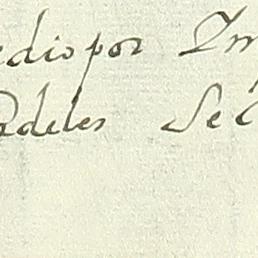 edio por Im
adeles Se